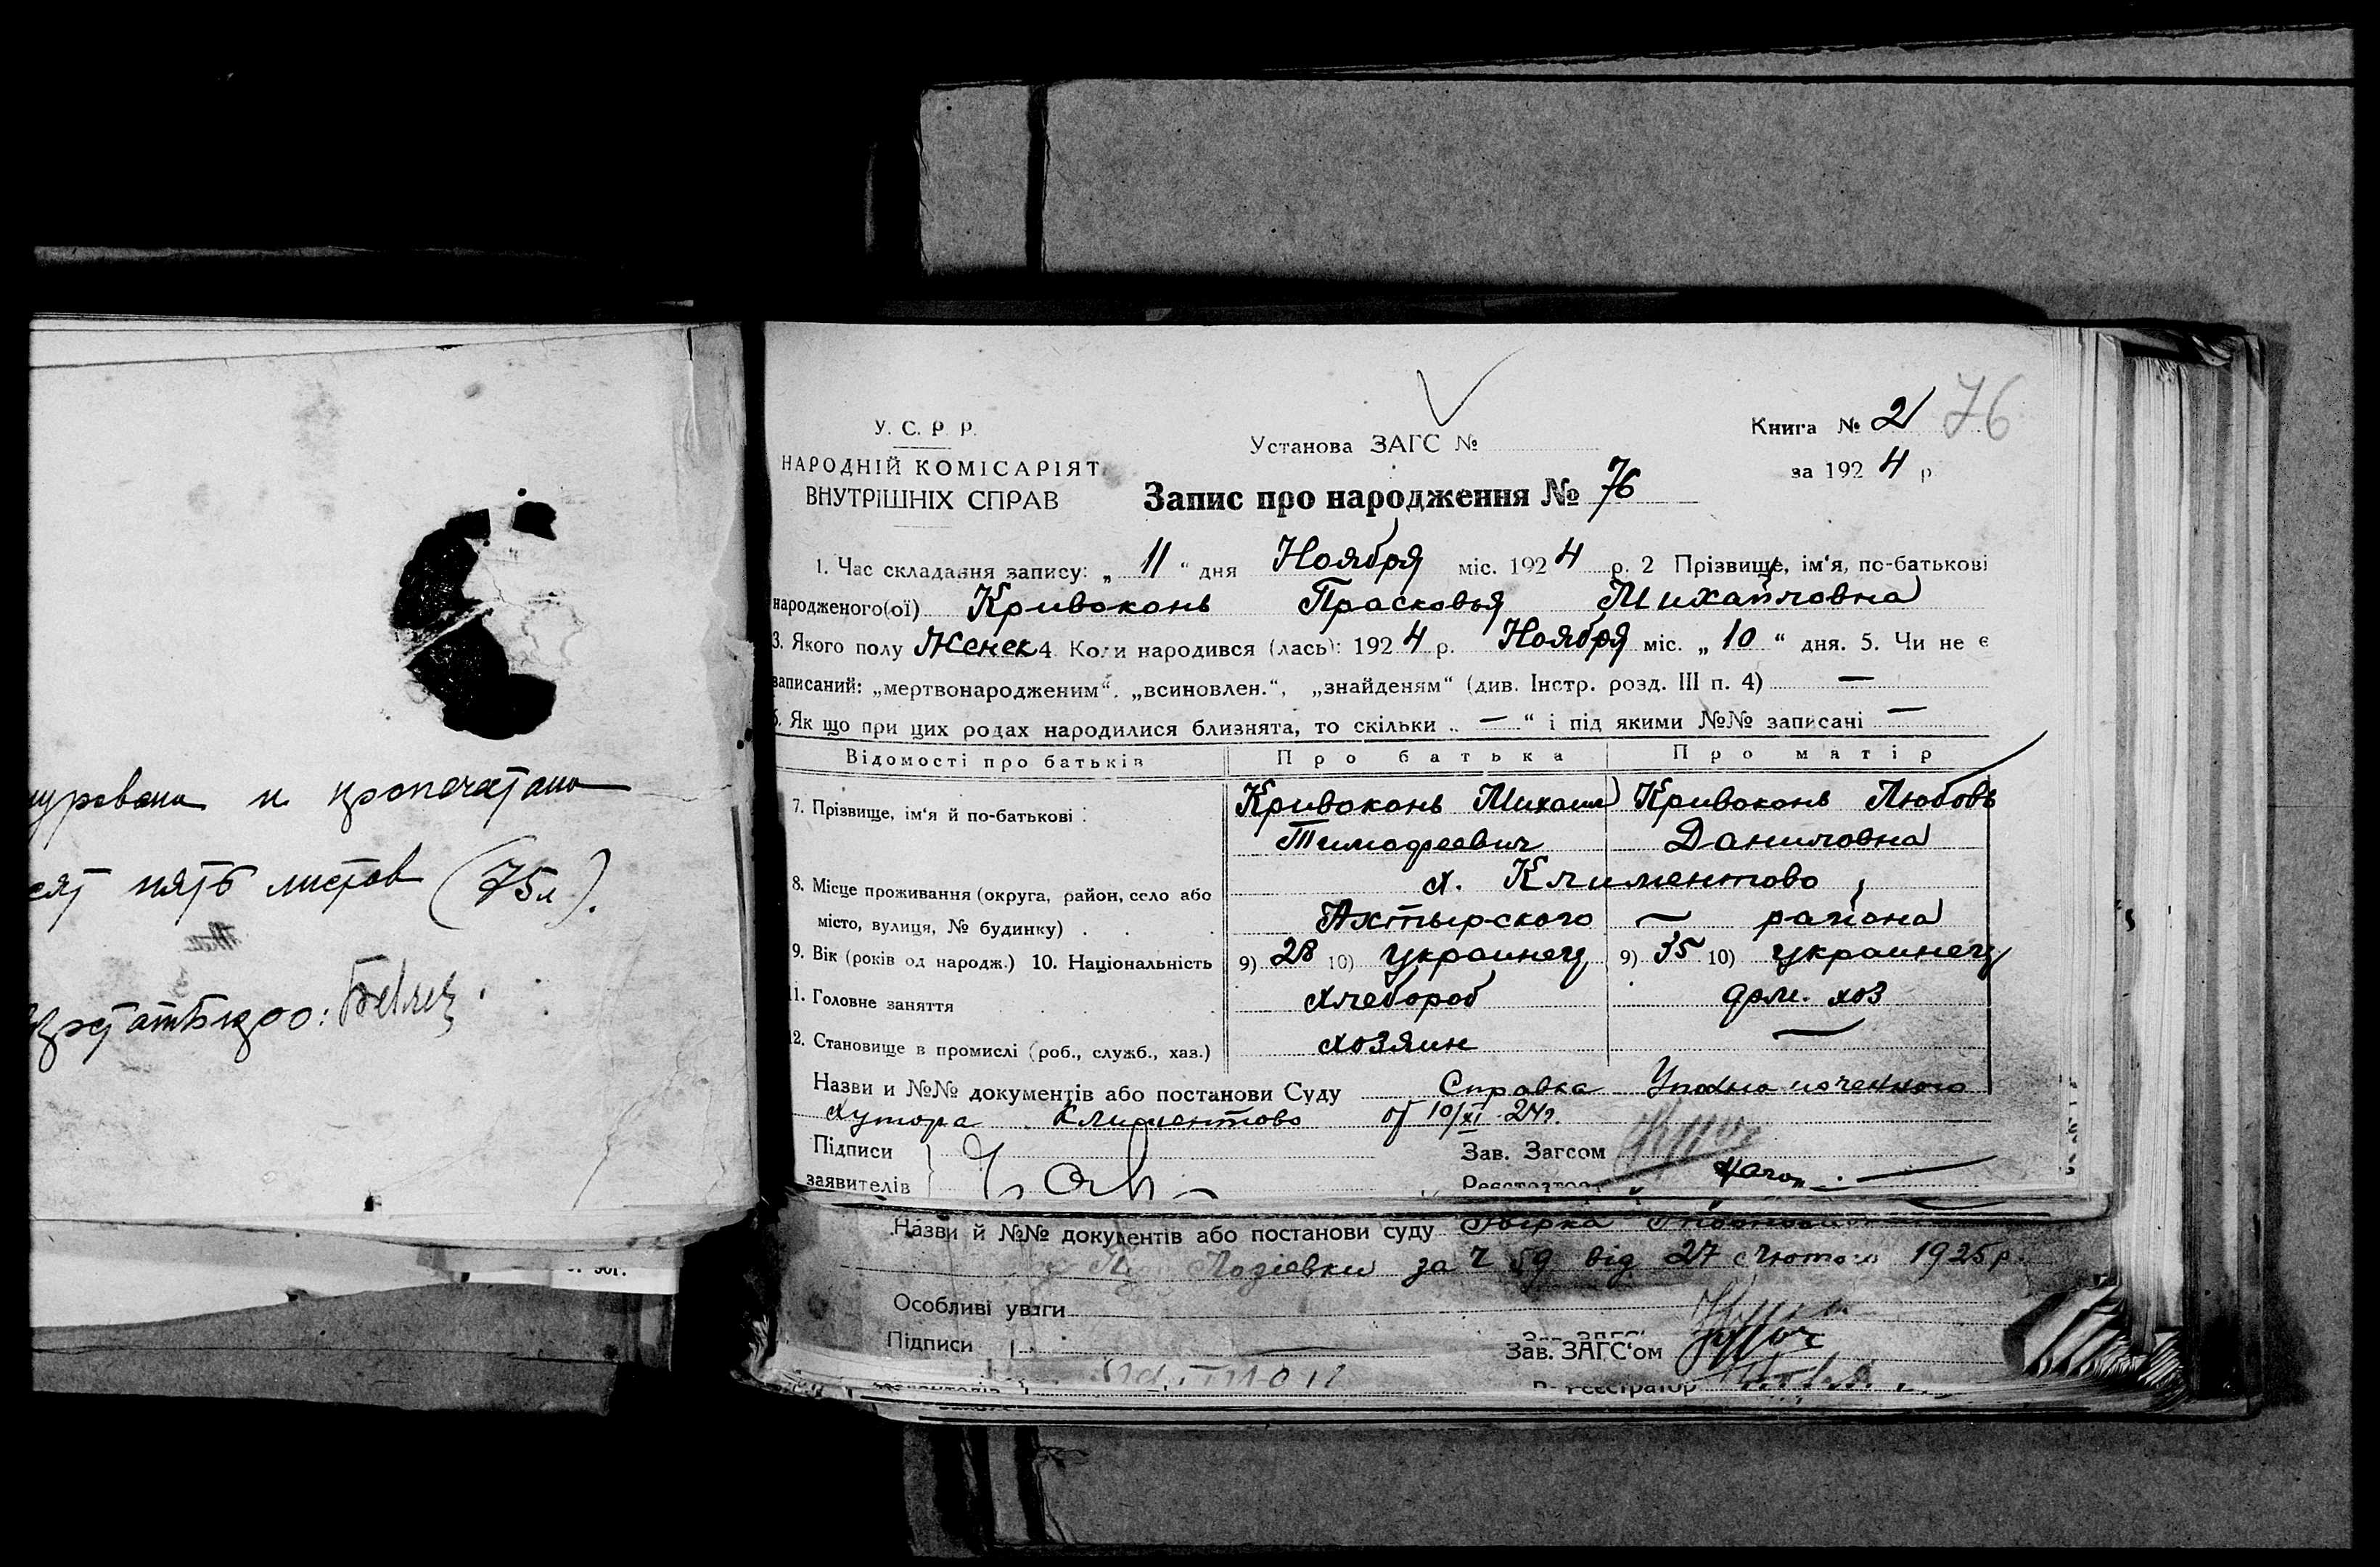 и пропечатано
пять листов (75л).
У. С. Р. Р.
НАРОДНІЙ КОМІСАРІЯТ
ВНУТРІШНІХ СПРАВ
Установа ЗАГС №
Книга № 2 76
за 1924 р
Запис про народження № 76
1. Час складання запису: „ 11 “ дня Ноября міс. 1924 р. 2 Прізвище, ім‘я, по-батькові
народженого(ої) Кривоконь Прасковья Михайловна
3. Якого полу Женск 4. Коли народився (лась): 1924 р. Ноября міс. „ 10 “ дня. 5. Чи не є
записаний: „мертвонародженим“, „всиновлен.“, „знайденям“ (див. Інстр. розд. III п. 4) —
6. Як що при цих родах народилися близнята, то скільки „ — “ і під якими №№ записані —
Відомості про батьків Про батька Про матір
7. Прізвище, ім‘я й по-батькові : Кривоконь Михаил Кривоконь Любовь
Тимофеевич Даниловна
8. Місце проживання (округа, район, село або х. Климентово,
місто, вулиця, № будинку) . . . Ахтырского — района
9. Вік (років од народж.) 10. Національність 9) 28 10) украинец 9) 35 10) украинец
11. Головне заняття хлебороб дом. хоз
12. Становище в промислі (роб., служб., хаз.) хозяин —
Назви и №№ документів або постанови Суду Справка
хутора Климентово от 10/XI 24г.
Підписи
заявителів
Зав. Загсом
Назви й №№ документів або постанови суду
Лозіевки за Ч 59 від 27 Лютого 1925 р.
Особливі уваги
Підписи
Зав. ЗАГС‘ом
Реєстратор